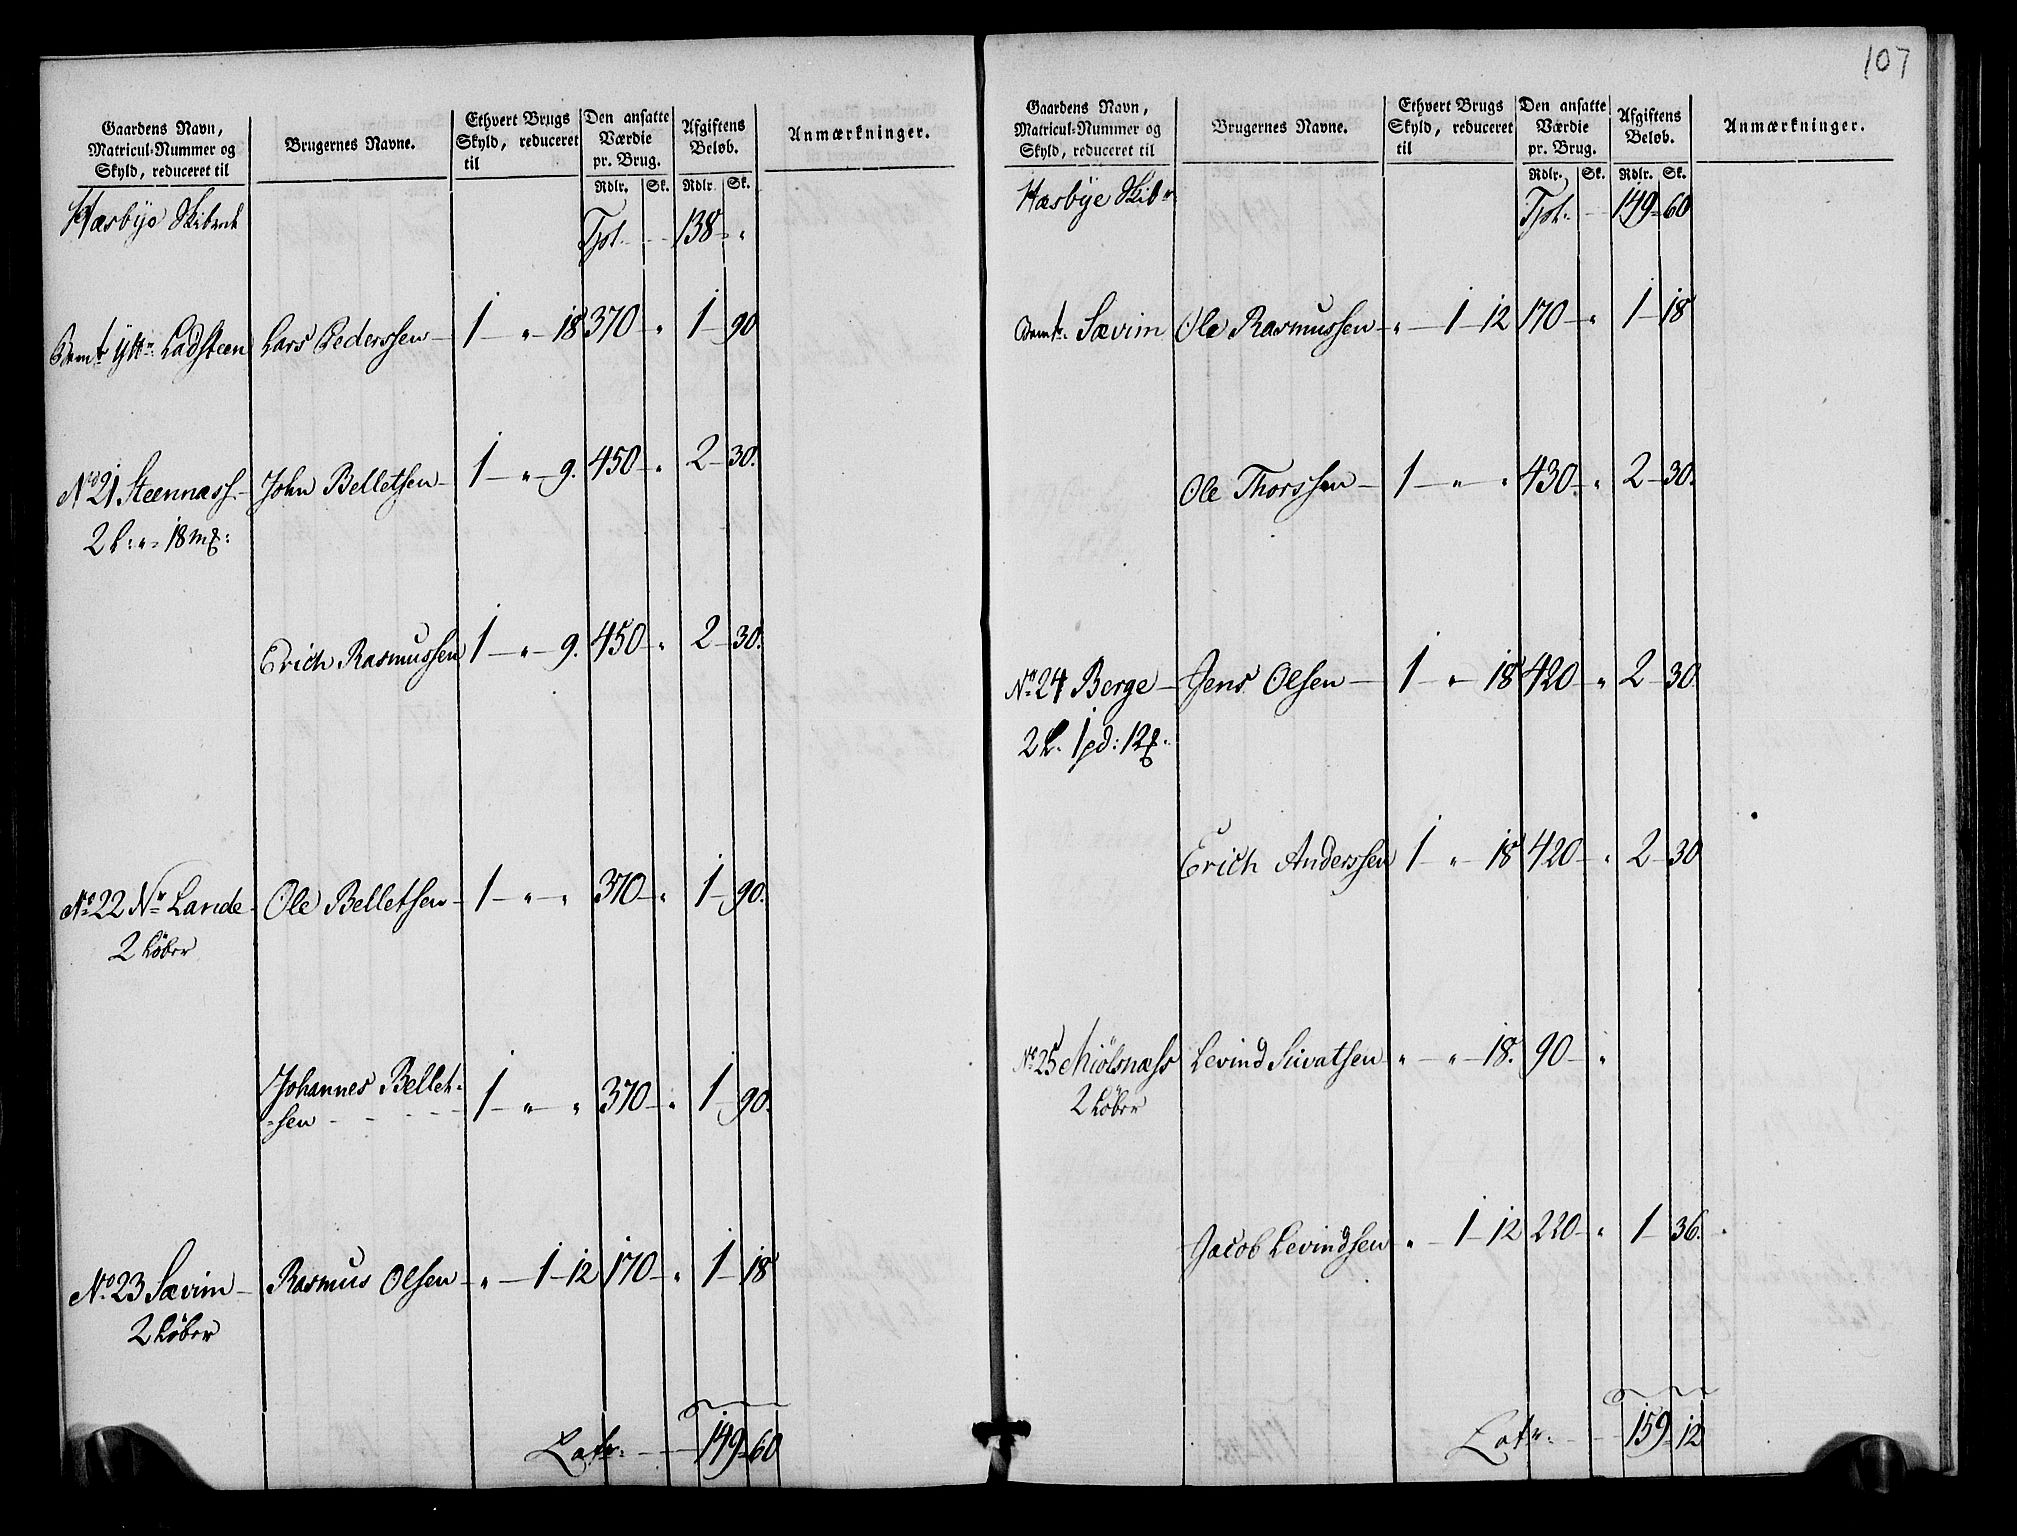 107
Gaardens Navn, Matricul-Nummer og Skyld, reduceret til | Brugernes Navne. | Ethvert Brugs Skyld, reduceret til | Den ansatte Værdie pr. Brug. | Afgiftens Beløb. | Anmærkninger.
Rdlr. | Sk. | Rdlr. | Sk.
Hæsbye Skibrede Tpt. 138 - "
Ladsteen Lars Pederssen 1 - " - 18 370 - " 1 - 90
No 21 Steennæss - John Belletsen - 1 - " - 9. 450 - " 2 - 30.
2 L: " - 18 mk:
Erich Rasmussen 1 - " - 9. 450 - " 2 - 30.
No 22 Nr Lande - Ole Belletsen - 1 - " - " 370 - " 1 - 90.
2 Løber
Johannes Bellet-
-sen 1 - " - " 370 - " 1 - 90.
No 23 Sævim - Rasmus Olsen - " - 1 - 12 170 - " 1 - 18
2 Løber
Latr: 149 - 60
Gaardens Navn, Matricul-Nummer og Skyld, reduceret til | Brugernes Navne. | Ethvert Brugs Skyld, reduceret til | Den ansatte Værdie pr. Brug. | Afgiftens Beløb. | Anmærkninger.
Rdlr. | Sk. | Rdlr. | Sk.
Hæsbye Skibr Tpt. 149 - 60
Sævim Ole Rasmussen - " - 1 - 12 170 - " 1 - 18
Ole Thorssen - 1 - " " 430. " 2 - 30.
No 24 Berge - Jens Olsen - 1 - " - 18 420 - " 2 - 30
2 L. 1 pd: 12
Erich Anderssen 1 " - 18 420 - " 2 - 30
No 25 Miølsnæss Levind Sivatsen - " - " - 18. 90 - "
2 Løber
Jacob Levindsen " - 1 - 12 220 - " 1 - 36.
Latr: 159 - 12